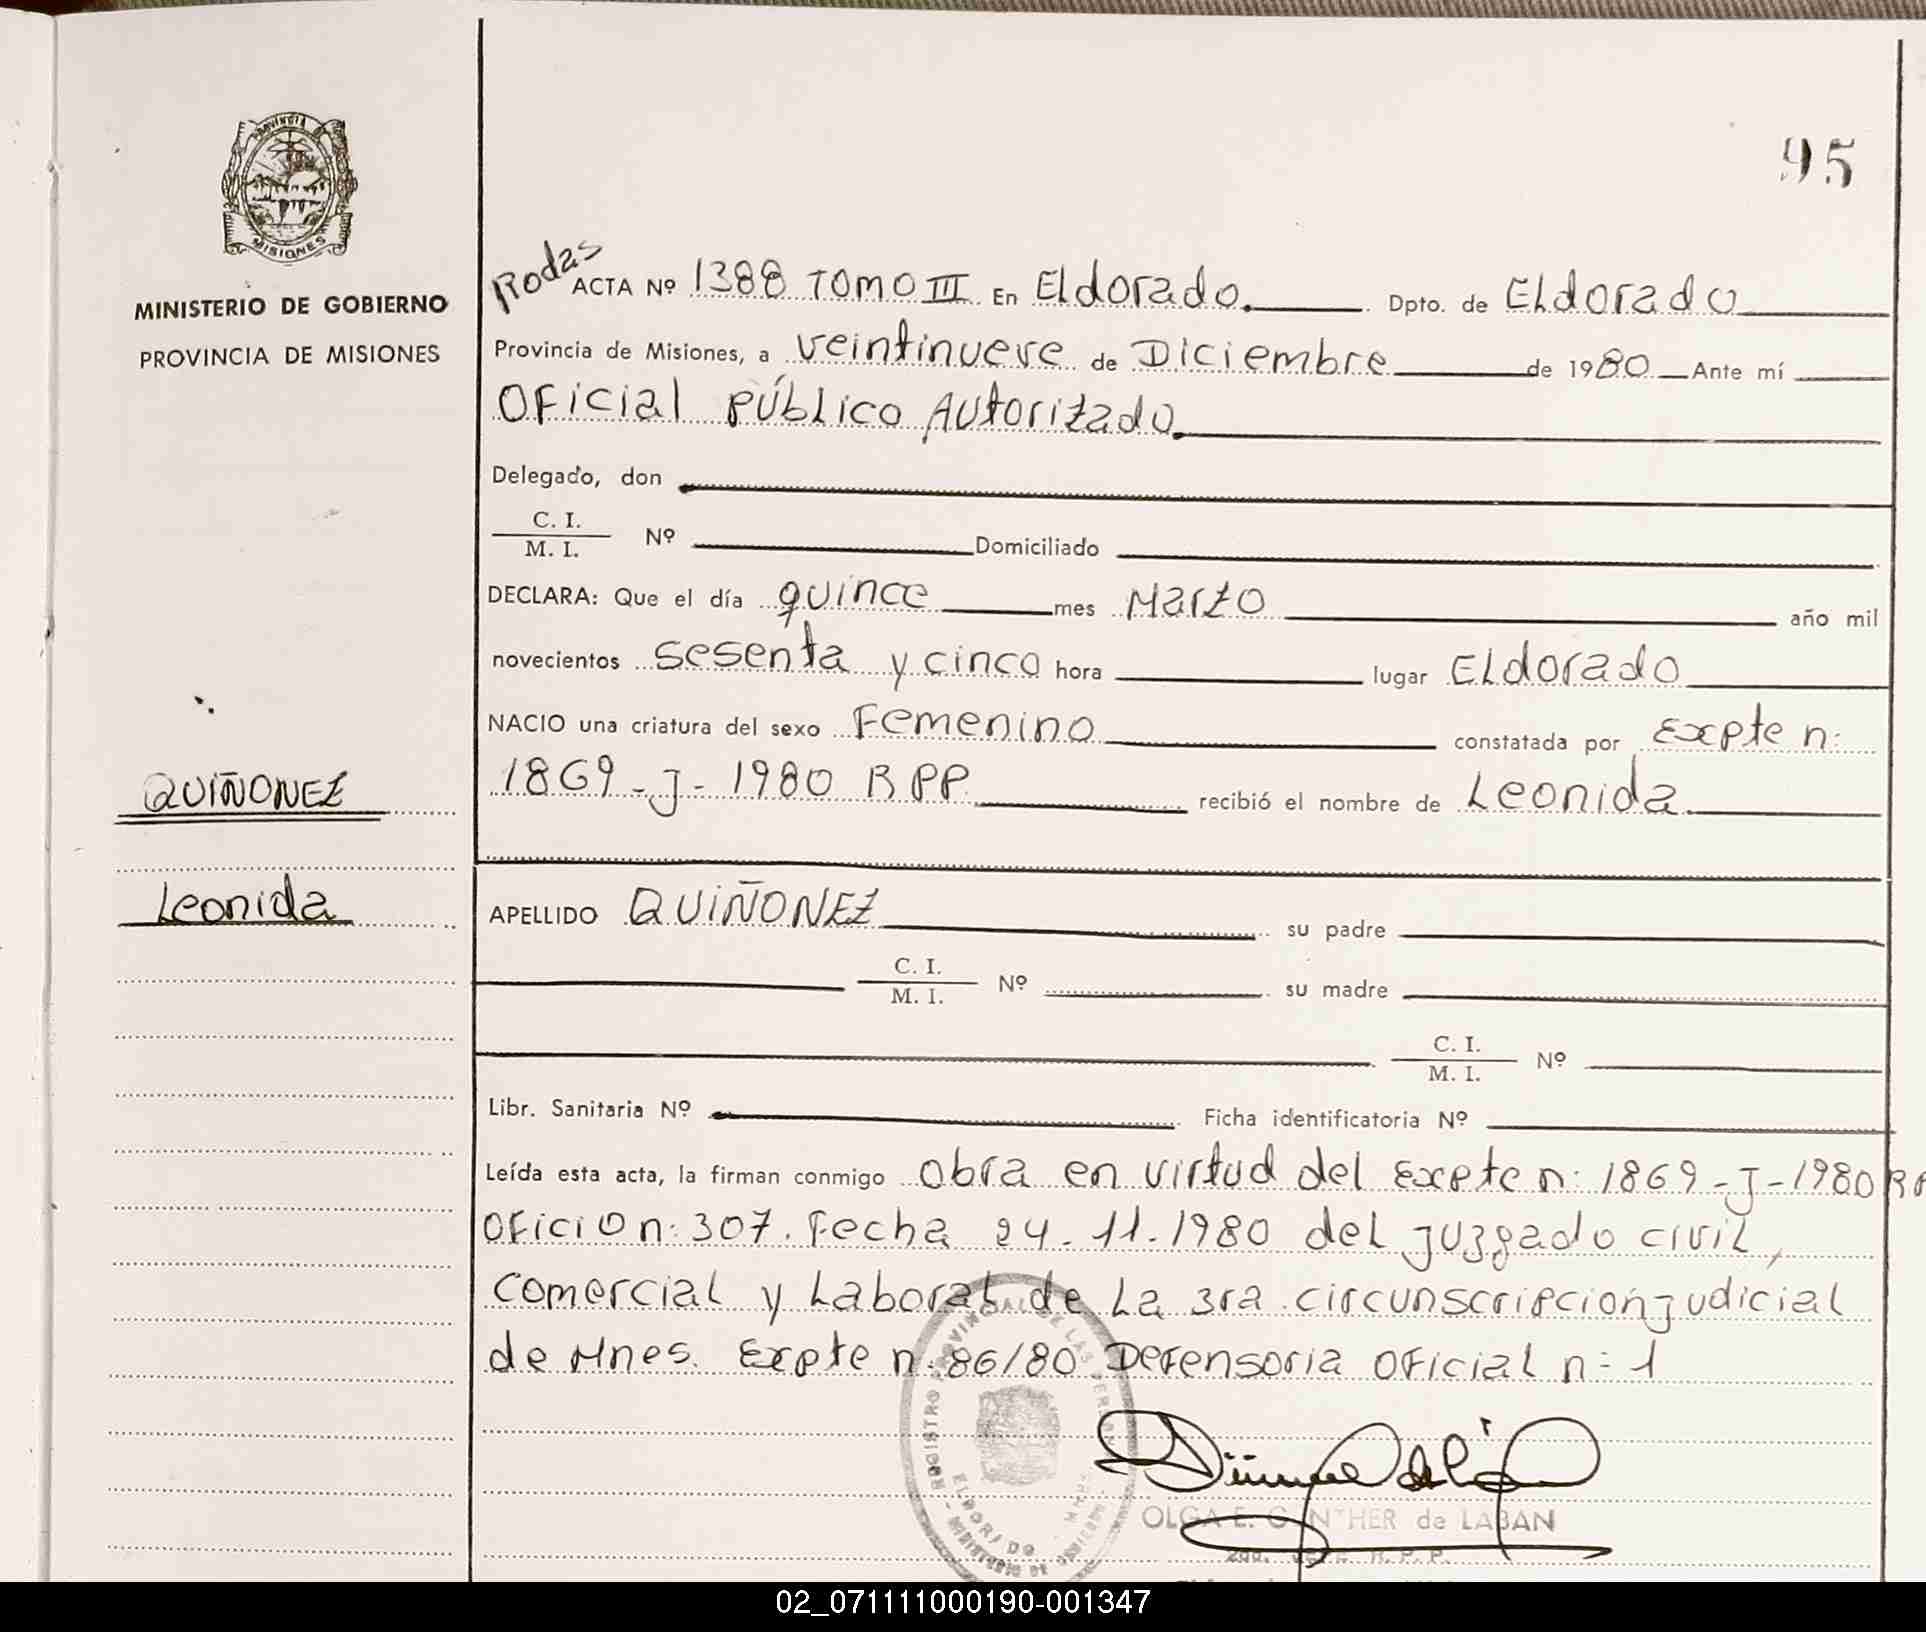 95
PROVINCIA DE
MISIONES
MINISTERIO DE GOBIERNO
PROVINCIA DE MISIONES
Rodas
ACTA Nº 1388 TOMO III En Eldorado. Dpto. de Eldorado
Provincia de Misiones, a veintinueve de Diciembre de 1980 Ante mí
Oficial Público Autorizado
Delegado, don
C. I.
M. I. Nº Domiciliado
DECLARA: Que el día quince mes Marzo año mil
novecientos sesenta y cinco hora lugar Eldorado
NACIO una criatura del sexo Femenino constatada por Expte n:
1869-J-1980 RPP recibió el nombre de Leonida
QUIÑONEZ
Leonida
APELLIDO QUIÑONEZ su padre
C. I.
M. I. Nº su madre
C. I.
M. I. Nº
Libr. Sanitaria Nº Ficha identificatoria Nº
Leída esta acta, la firman conmigo obra en virtud del Expte n: 1869-J-1980 RP
Oficio n: 307. Fecha 24-11-1980 del juzgado civil,
comercial y Laboral de La 3ra circunscripcion judicial
de Mnes. Expte n: 86/80 Defensoria Oficial n= 1
REGISTRO PROVINCIAL DE LAS PERSONAS
ELDORADO
OLGA E. GUNTHER de LABAN
R. P. P.
02_071111000190-001347